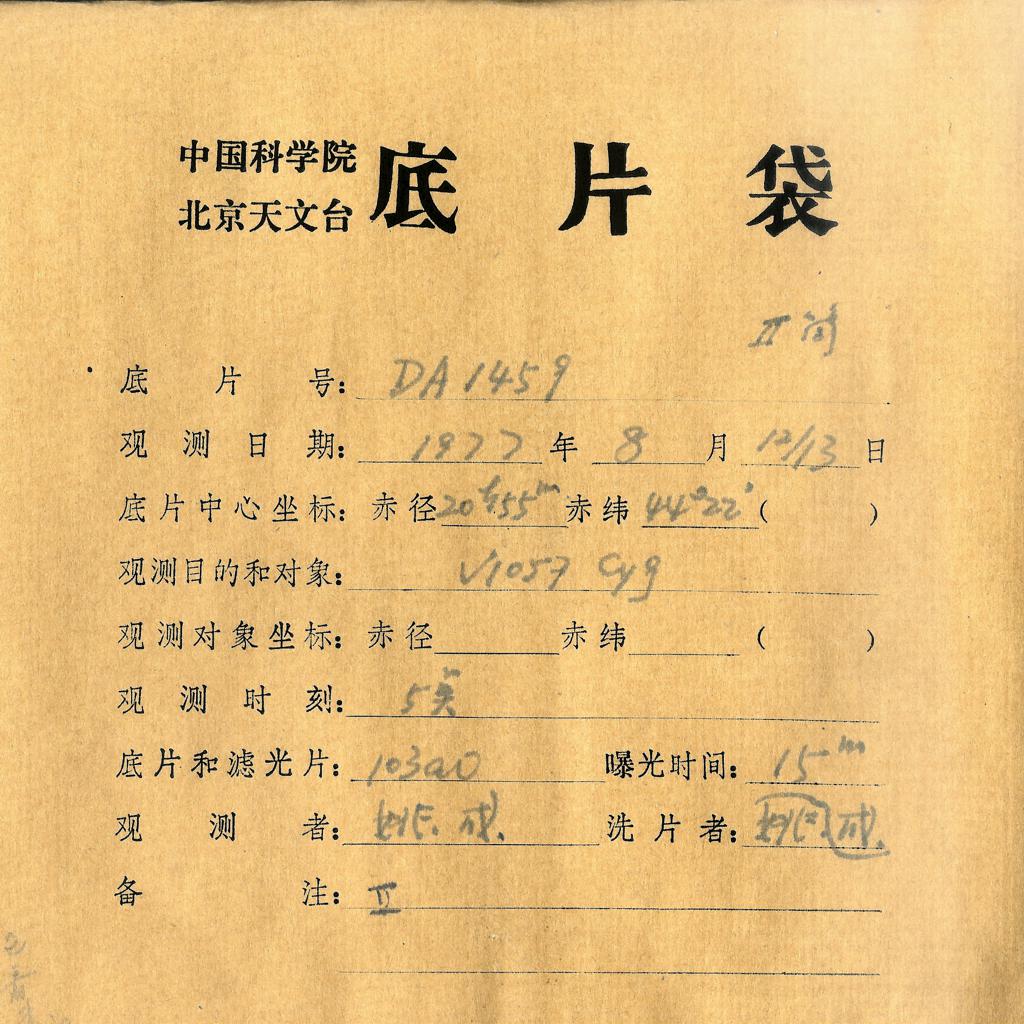 中国科学院
北京天文台
底片袋
II
底片号: DA 1459
观测日期: 1977年8月12/13日
底片中心坐标: 赤径20ʰ55ᵐ赤纬44°22′( )
观测目的和对象: V1057 Cyg
观测对象坐标: 赤径 赤纬 ( )
观测时刻: 5
底片和滤光片: 103aO 曝光时间: 15ᵐ
观测者: 成. 洗片者: 成.
备注: II